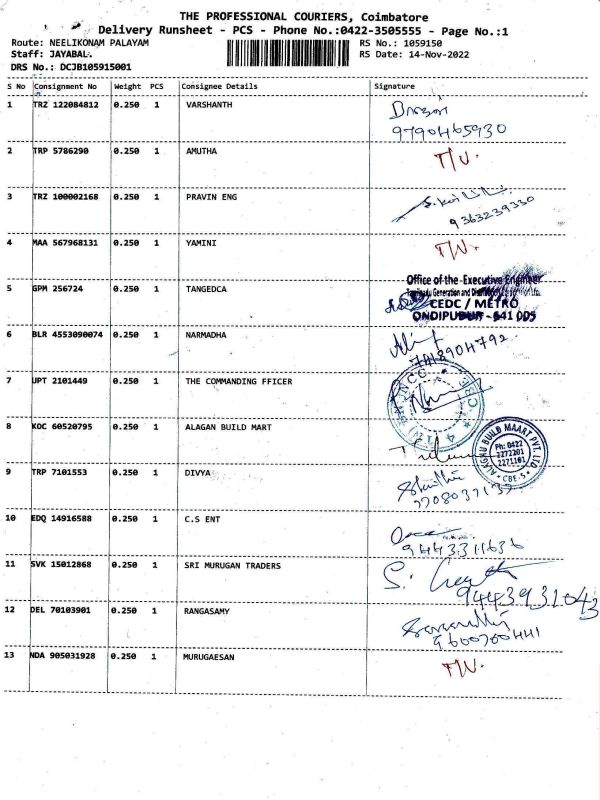 THE PROFESSIONAL COURIERS, Coimbatore
Delivery Runsheet - PCS - Phone No.:0422-3505555 - Page No.:1
Route: NEELIKONAM PALAYAM RS No.: 1059150
Staff: JAYABAL RS Date: 14-Nov-2022
DRS No.: DCJB105915001
S No Consignment No Weight PCS Consignee Details Signature
1 TRZ 122084812 0.250 1 VARSHANTH
9790465930
2 TRP 5786290 0.250 1 AMUTHA
3 TRZ 100002168 0.250 1 PRAVIN ENG
9363239330
4 MAA 567968131 0.250 1 YAMINI
Office of the Executive Engineer
5 GPM 256724 0.250 1 TANGEDCA
CEDC / METRO
ONDIPUDUR - 641 005
6 BLR 4553090074 0.250 1 NARMADHA
7418904792
7 UPT 2101449 0.250 1 THE COMMANDING FFICER
8 KOC 60520795 0.250 1 ALAGAN BUILD MART
ALAGAN BUILD MAART PVT. LTD.
Ph: 0422
2272201
2271101
CBE-5
9 TRP 7101553 0.250 1 DIVYA
10 EDQ 14916588 0.250 1 C.S ENT
9443311636
11 SVK 15012868 0.250 1 SRI MURUGAN TRADERS
9443931043
12 DEL 70103901 0.250 1 RANGASAMY
9600700441
13 NDA 905031928 0.250 1 MURUGAESAN